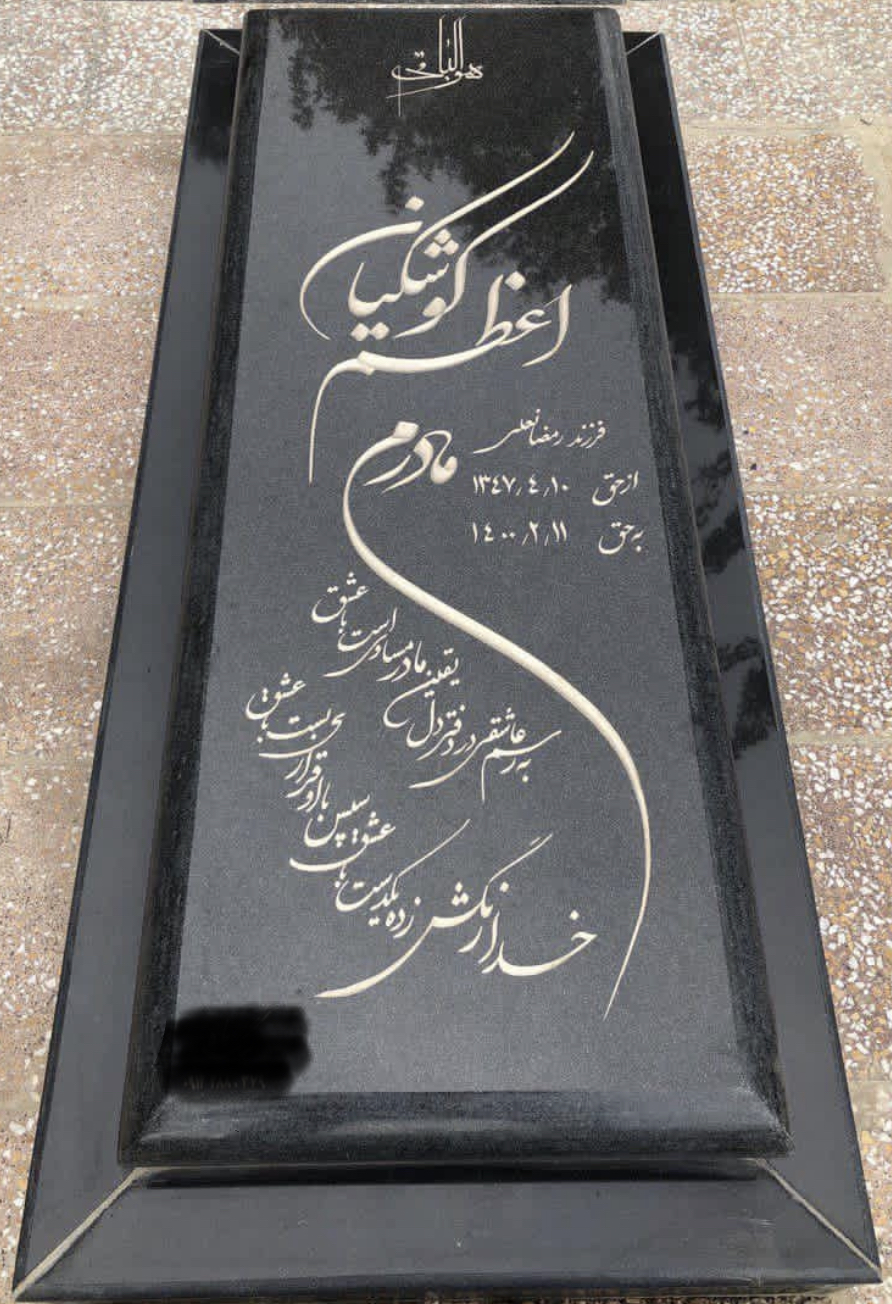 هو الباقی
اعظم کوشکیان
فرزند رمضانعلی
از حق ۱۳٤۷٫٤٫۱۰
به حق ۱٤۰۰٫۲٫۱۱
مادرم
به رسم عاشقی در دفتر دل
یقین مادر مساوی است با عشق
خدا رنگش زده یکدست با عشق
سپس با او قراری بست با عشق